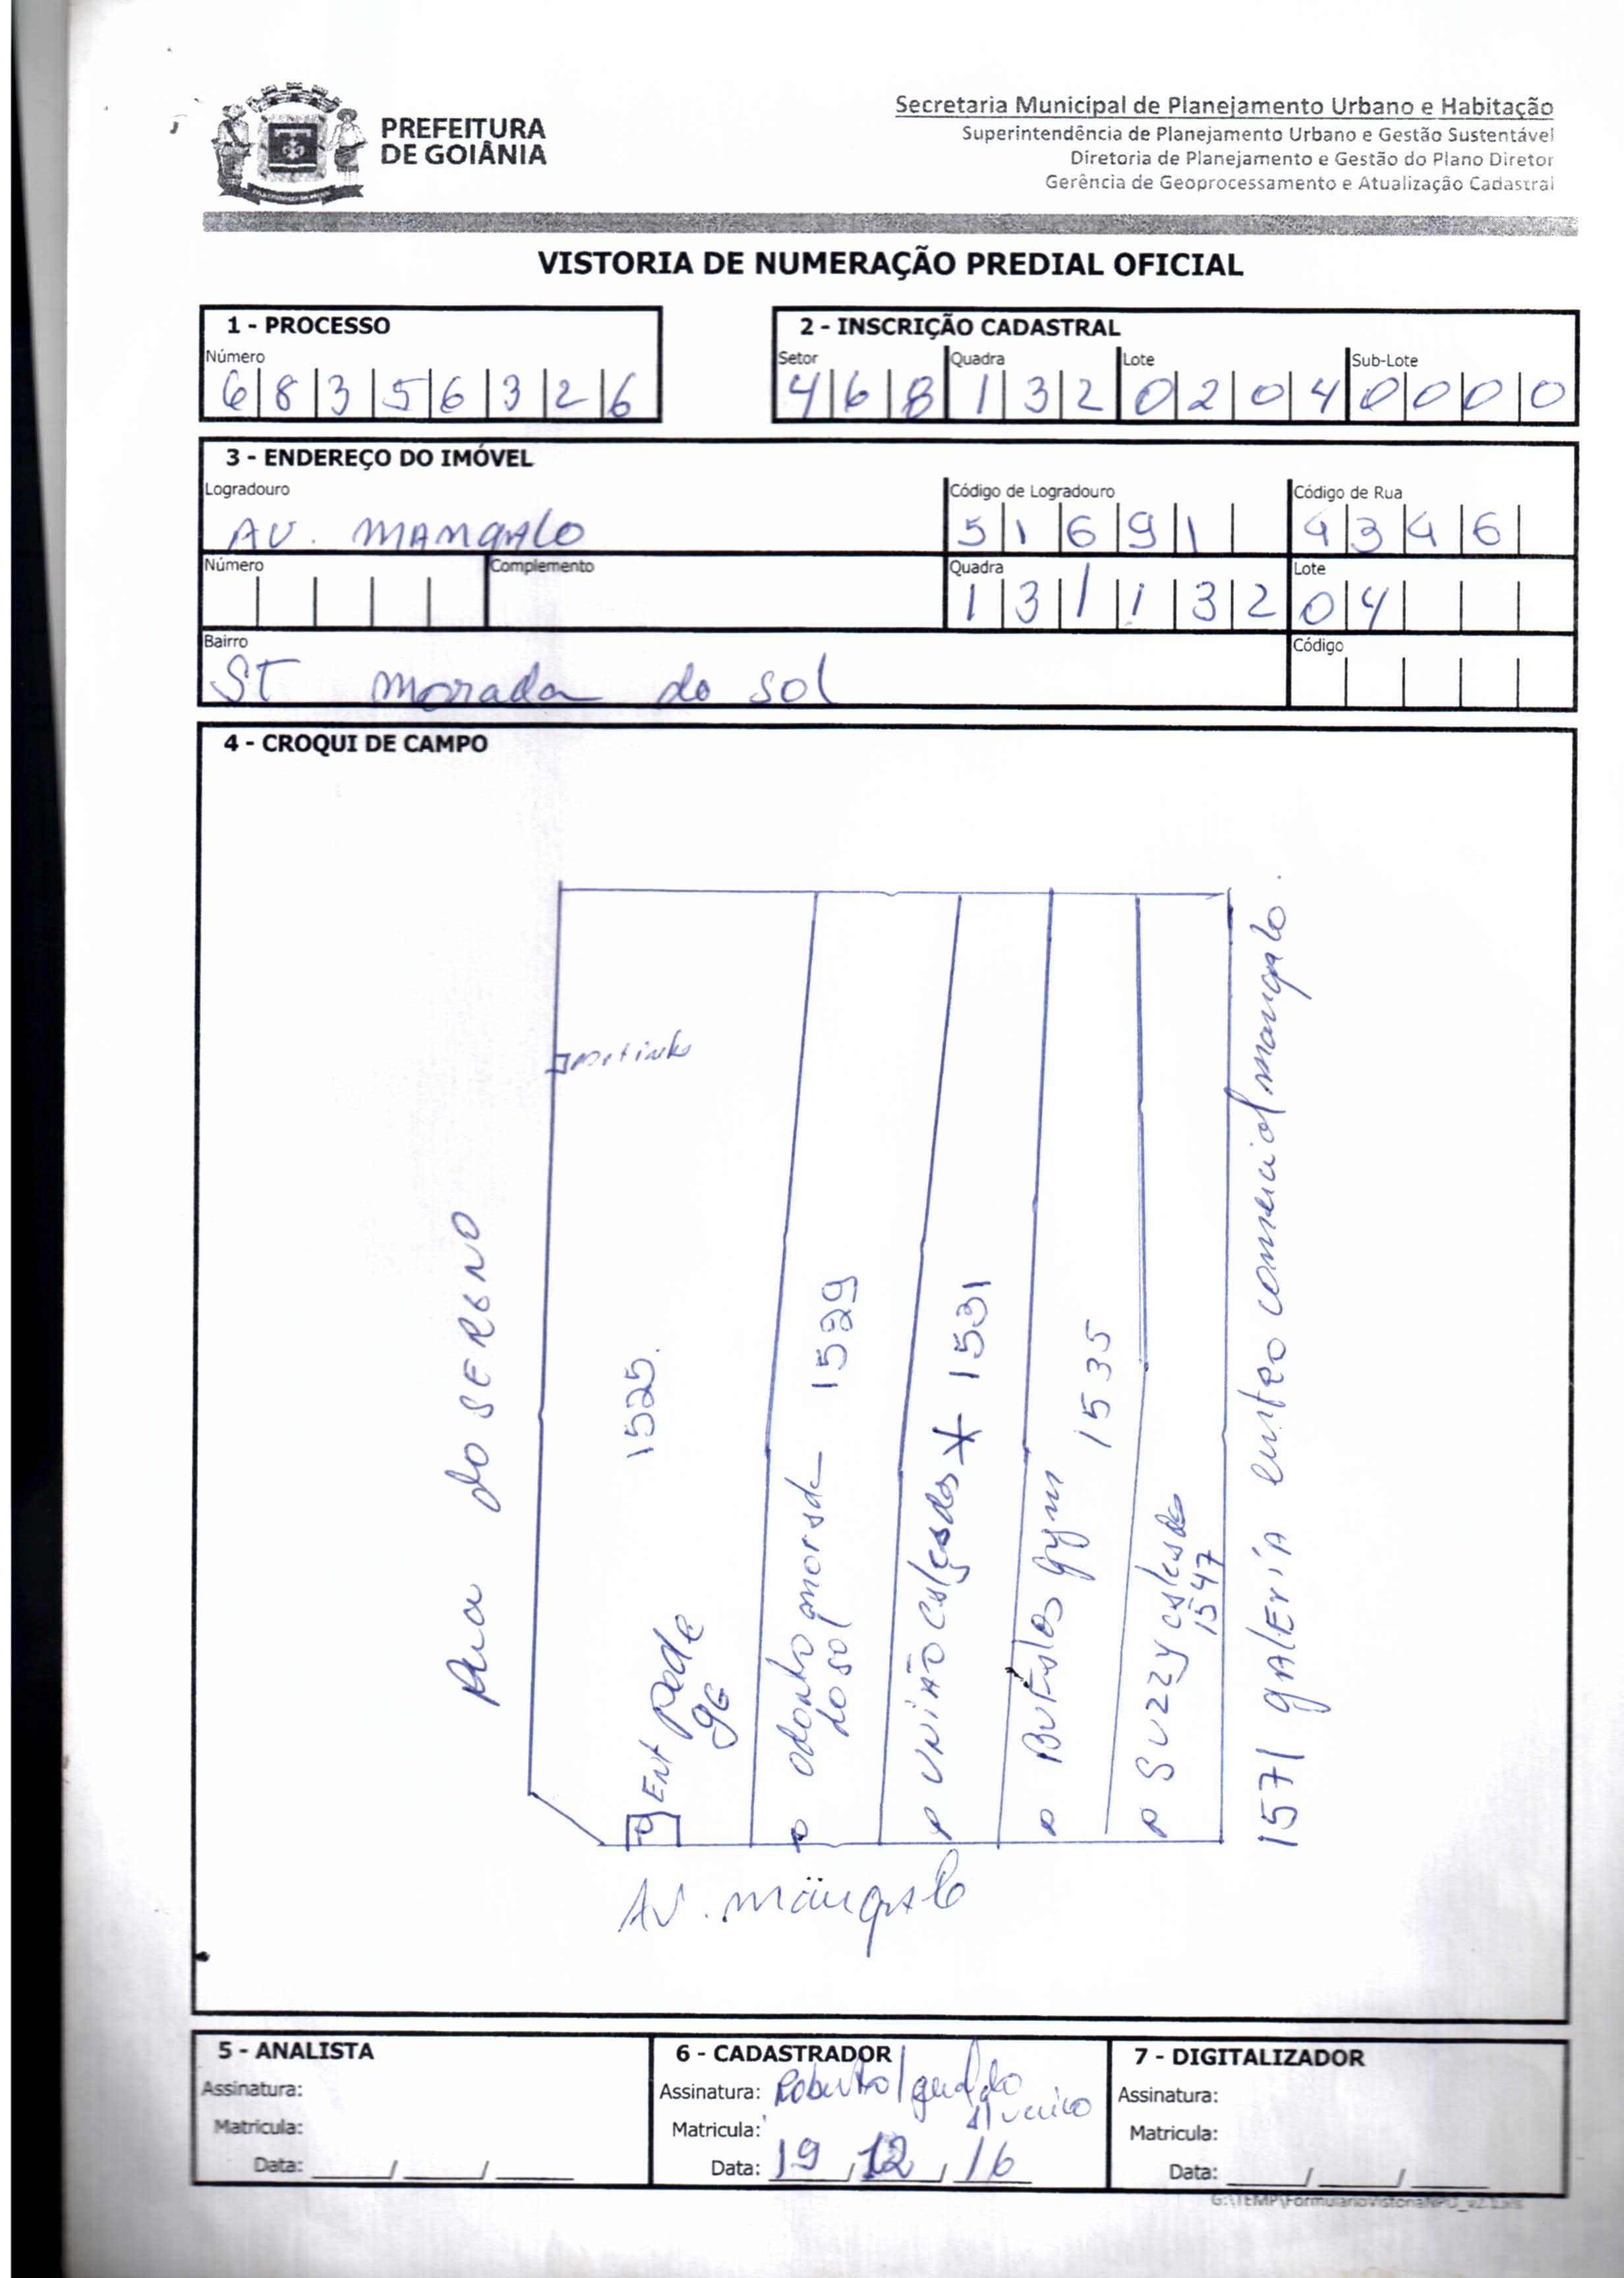 PREFEITURA
DE GOIÂNIA
Secretaria Municipal de Planejamento Urbano e Habitação
Superintendência de Planejamento Urbano e Gestão Sustentável
Diretoria de Planejamento e Gestão do Plano Diretor
Gerência de Geoprocessamento e Atualização Cadastral
VISTORIA DE NUMERAÇÃO PREDIAL OFICIAL
1 - PROCESSO
Número
6 8 3 5 6 3 2 6
2 - INSCRIÇÃO CADASTRAL
Setor Quadra Lote Sub-Lote
4 6 8 1 3 2 0 2 0 4 0 0 0 0
3 - ENDEREÇO DO IMÓVEL
Logradouro Código de Logradouro Código de Rua
AV. MANGALO 5 1 6 9 1 4 3 4 6
Número Complemento Quadra Lote
1 3 1 / 1 3 2 0 4
Bairro Código
ST morada do sol
4 - CROQUI DE CAMPO
Rua do SERENO
1525.
Ent
9G
odonto morada 1529
do sol
UNIÃO Calçados * 1531
Bufalos gym 1535
SUZZY calçados
1547
1571 GALERIA centro comercial mangalo.
AV. mangalo
5 - ANALISTA
Assinatura:
Matricula:
Data: ____/____/____
6 - CADASTRADOR
Assinatura: Roberto / geraldo
Matricula:
Data: 19 / 12 / 16
7 - DIGITALIZADOR
Assinatura:
Matricula:
Data: ____/____/____